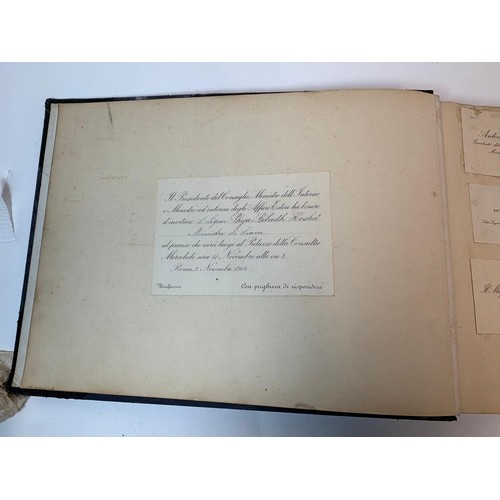 Il Presidente del Consiglio, Ministro dell'Interno
e Ministro ad interim degli Affari Esteri ha l'onore
d'invitare il Signor Phya
Ministro di Siam
al pranzo che avrà luogo al Palazzo della Consulta
Mercoledì sera 11 Novembre, alle ore 8.
Roma, 2 Novembre
Uniforme
Con preghiera di rispondere
Anton
Presidente del